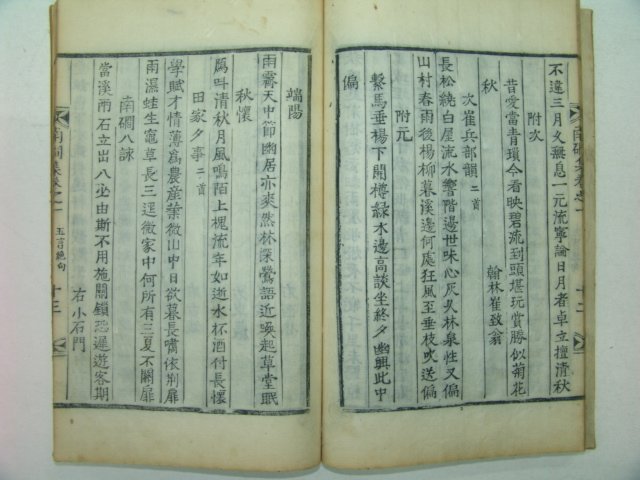 不違三月又無息一元流寧論日月者卓立擅清秋
附次
翰林崔致翁
昔愛當青瑣今看映碧流到頭堪玩賞勝似菊花
秋
次崔兵部韻 二首
長松繞白屋流水響階邊世味心灰久林泉性又偏
山村春雨後楊柳暮溪邊何處狂風至垂枝吹送偏
附元
繫馬垂楊下開樽綠木邊高談坐終夕幽興此中
偏
端陽
雨霽天中節幽居亦爽然林深鶯語近喚起草堂眠
秋懷
屬呼清秋月風鳴陌上槐流年如逝水杯酒付長懷
田家夕事 二首
學賦才情薄爲農産業微山中日欲暮長嘯依荊扉
雨濕蛙生竈草長三逕微家中何所有三夏不關扉
南磵八詠
當溪兩石立出入必由斯不用施關鎖恐遲遊客期
右小石門
南磵集卷之一
五言絶句
十三